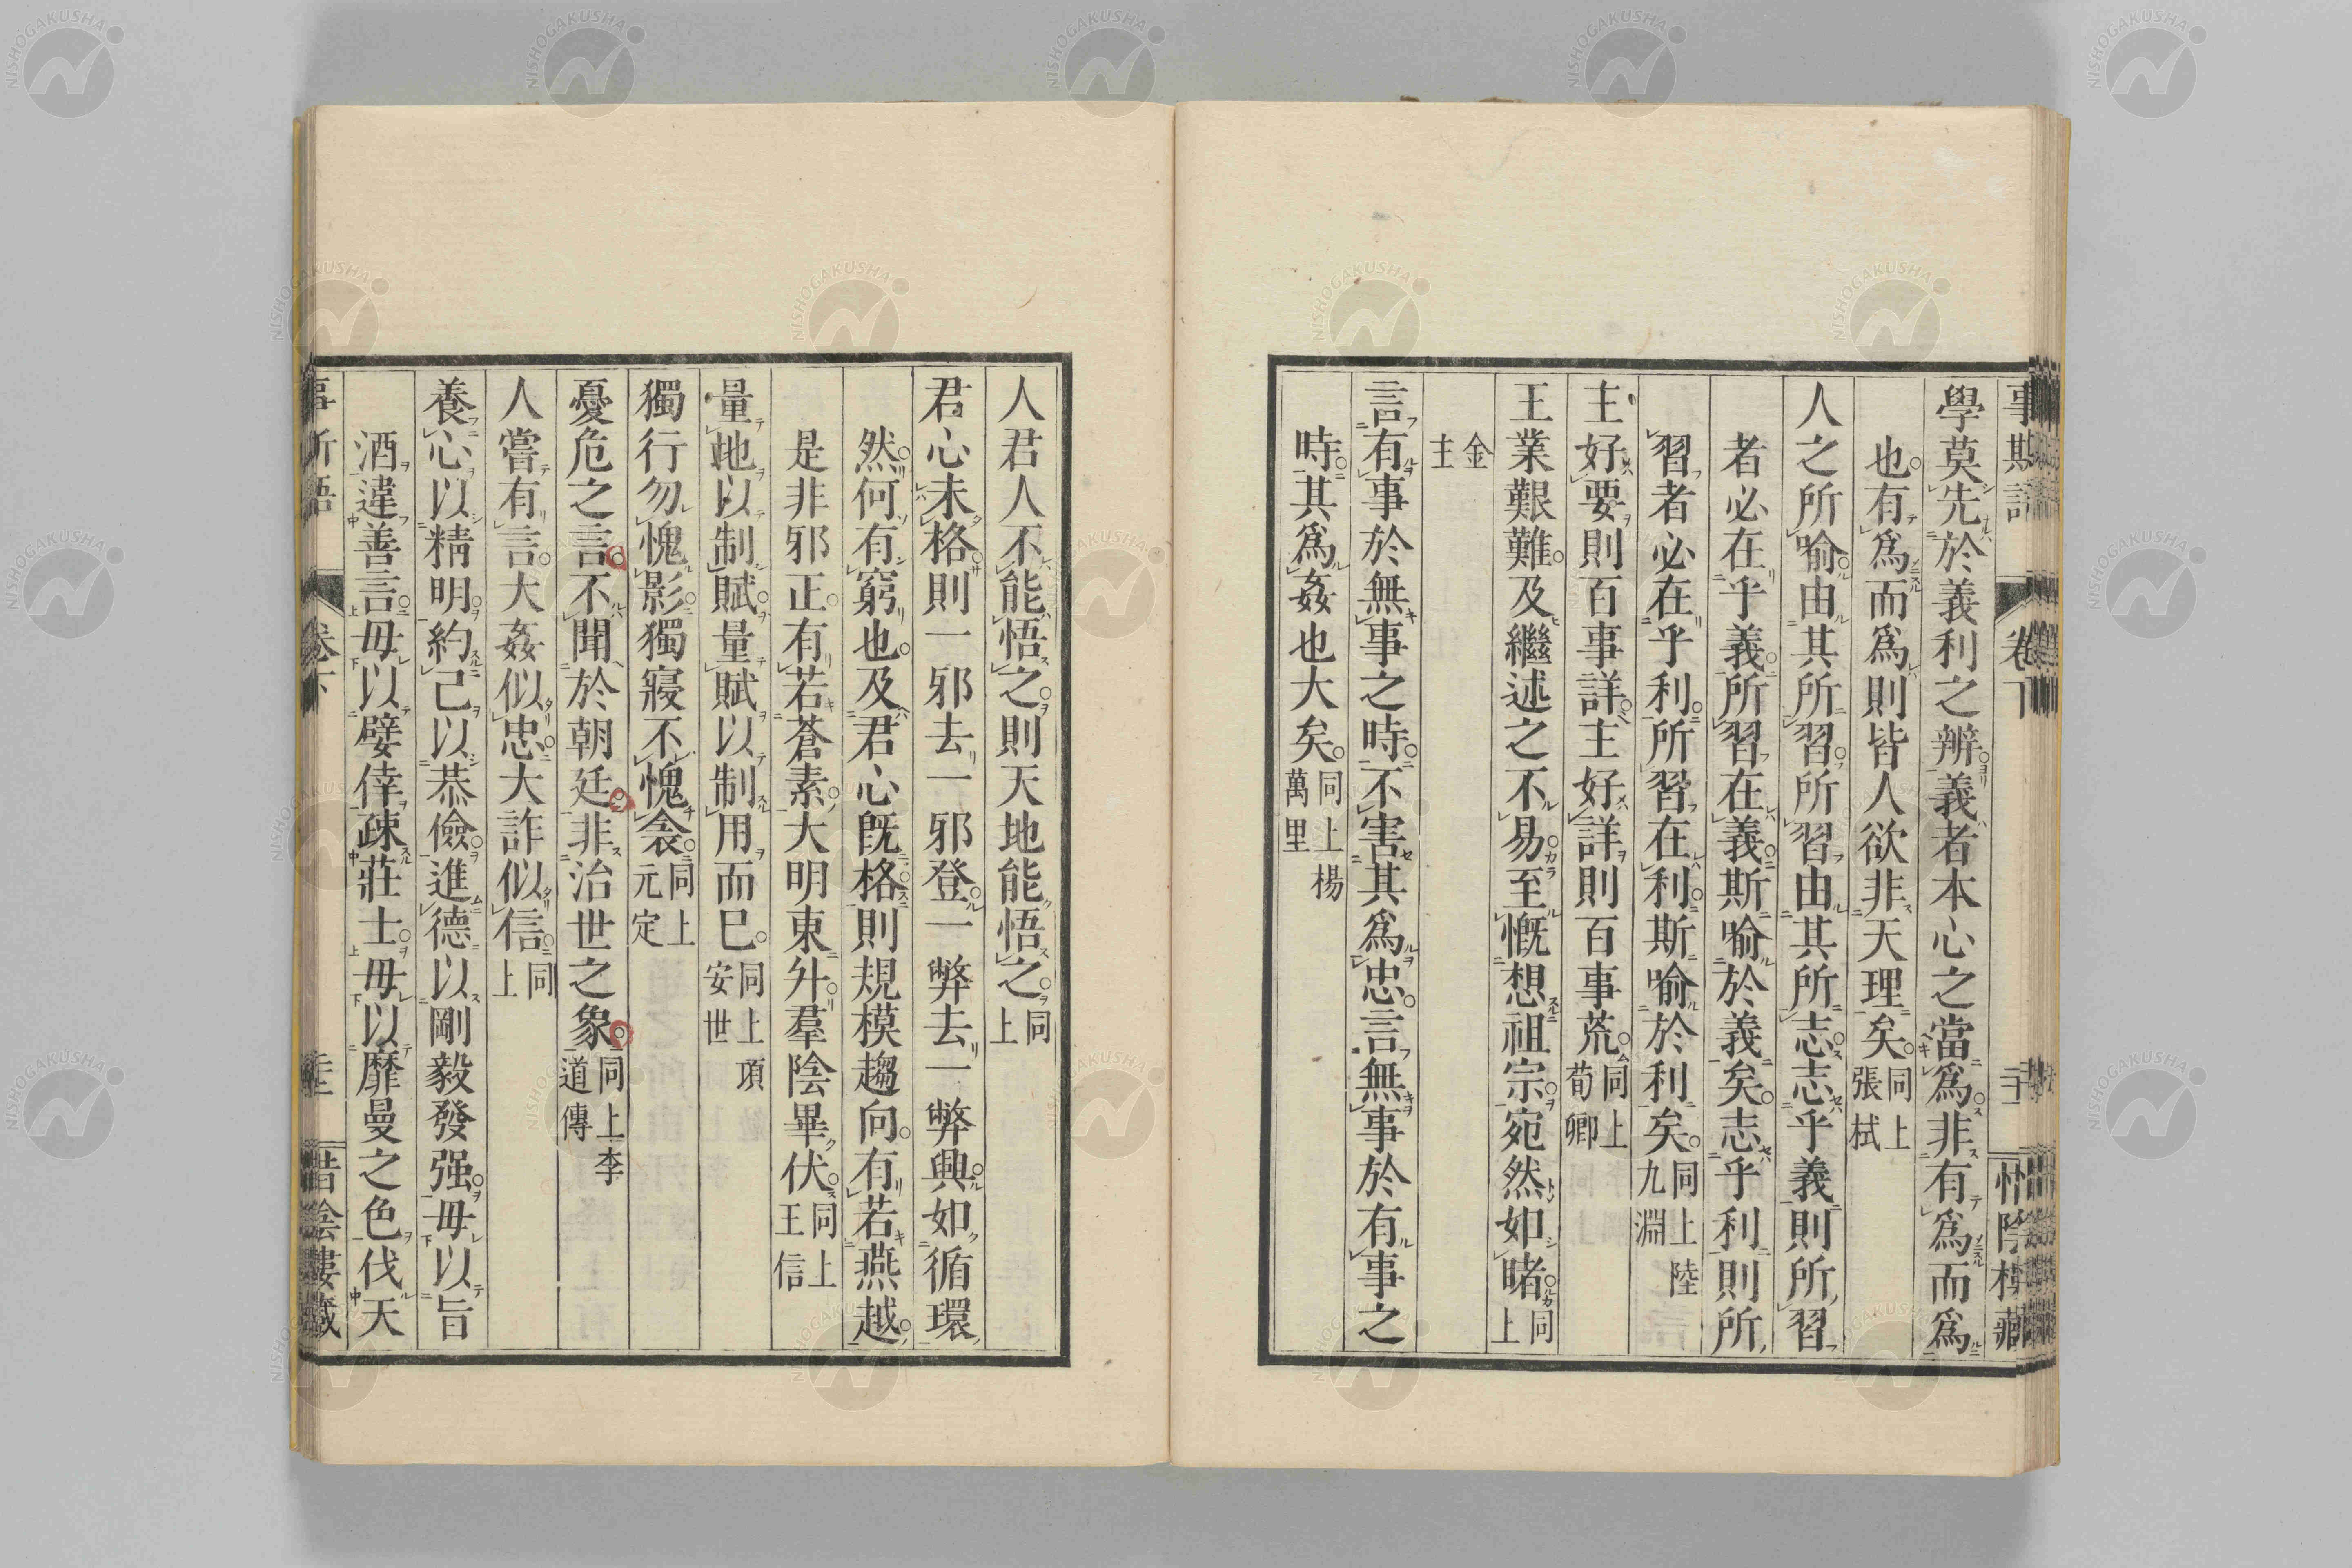 學莫先於義利之辨義者本心之當爲非有爲而爲
也有爲而爲則皆人欲非天理矣同上張栻
人之所喻由其所習所習由其所志志乎義則所習
者必在乎義所習在義斯喻於義矣志乎利則所
習者必在乎利所習在利斯喻於利矣同上陸九淵
主好要則百事詳主好詳則百事荒同上荀卿
王業艱難及繼述之不易至慨想祖宗宛然如睹同上
金主
言有事於無事之時不害其爲忠言無事於有事之
時其爲姦也大矣同上楊萬里
人君人不能悟之則天地能悟之同上
君心未格則一邪去一邪登一弊去一弊興如循環
然何有窮也及君心旣格則規模趨向有若燕越
是非邪正有若蒼素大明東升羣陰畢伏同上王信
量地以制賦量賦以制用而已同上項安世
獨行勿愧影獨寢不愧衾同上元定
憂危之言不聞於朝廷非治世之象同上李道傳
人嘗有言大姦似忠大詐似信同上
養心以精明約己以恭儉進德以剛毅發强毋以旨
酒違善言毋以嬖倖疎莊士毋以靡曼之色伐天
卷下
惜陰樓藏
NISHOGAKUSHA